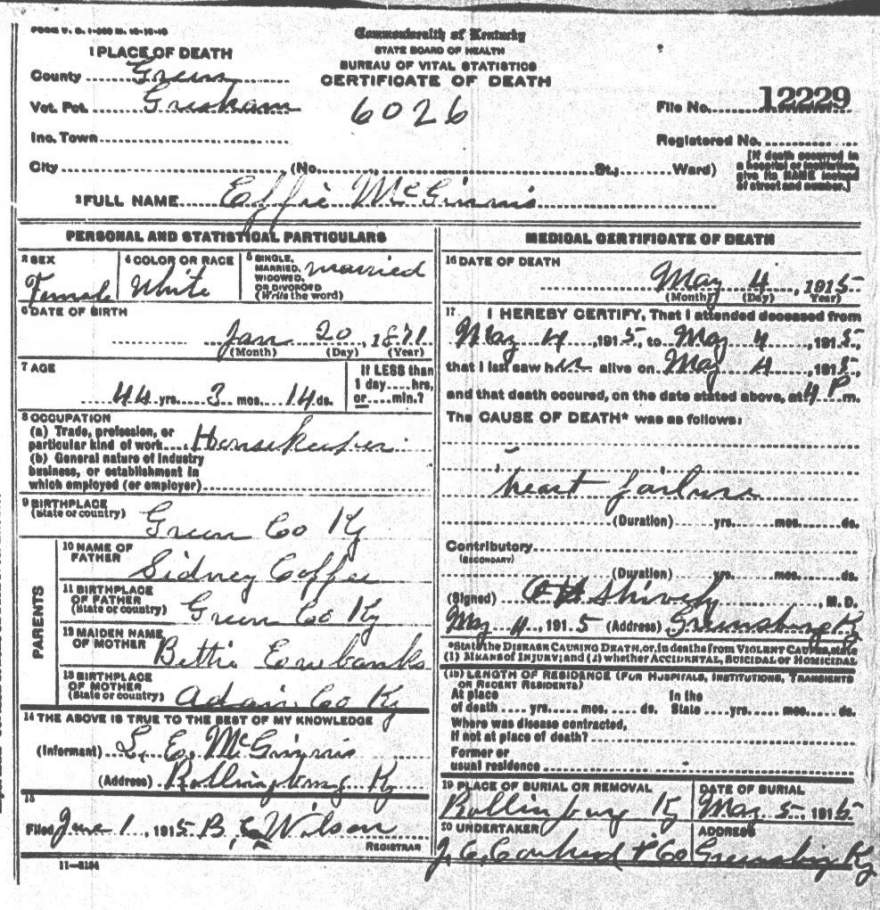 FORM V. S. 1-
Commonwealth of Kentucky
STATE BOARD OF HEALTH
BUREAU OF VITAL STATISTICS
CERTIFICATE OF DEATH
1 PLACE OF DEATH
County Green
Vot. Pct. Gresham
6026
File No. 12229
Inc. Town
Registered No.
City (No. St.; Ward)
[If death occurred in
a hospital or institution,
give its NAME instead
of street and number.]
2 FULL NAME Effie McGinnis
PERSONAL AND STATISTICAL PARTICULARS
3 SEX
Female
4 COLOR OR RACE
White
5 SINGLE,
MARRIED,
WIDOWED,
OR DIVORCED
(Write the word)
married
6 DATE OF BIRTH
Jan 20, 1871
(Month) (Day) (Year)
7 AGE
44 yrs. 3 mos. 14 ds.
If LESS than
1 day....hrs.
or.....min.?
8 OCCUPATION
(a) Trade, profession, or
particular kind of work Housekeeper
(b) General nature of industry
business, or establishment in
which employed (or employer)
9 BIRTHPLACE
(State or country) Green Co Ky
PARENTS
10 NAME OF
FATHER Sidney Coffee
11 BIRTHPLACE
OF FATHER
(State or country) Green Co Ky
12 MAIDEN NAME
OF MOTHER Bettie Eewbanks
13 BIRTHPLACE
OF MOTHER
(State or country) Adair Co Ky
14 THE ABOVE IS TRUE TO THE BEST OF MY KNOWLEDGE
(Informant) L. E. McGinnis
(Address) Bollingburg Ky
15
Filed June 1, 1915 B. Wilson
REGISTRAR
11-3184
MEDICAL CERTIFICATE OF DEATH
16 DATE OF DEATH
May 4, 1915
(Month) (Day) Year)
17 I HEREBY CERTIFY, That I attended deceased from
May 4, 1915, to May 4, 1915,
that I last saw her alive on May 4, 1915,
and that death occured, on the date stated above, at 4 P m.
The CAUSE OF DEATH* was as follows:
heart failure
(Duration) yrs. mos. ds.
Contributory
(SECONDARY)
(Duration) yrs. mos. ds.
(Signed) Shively, M. D.
May 4, 1915 (Address) Greensburg Ky
*State the DISEASE CAUSING DEATH, or, in deaths from VIOLENT CAUSES, state
(1) MEANS OF INJURY; and (2) whether ACCIDENTAL, SUICIDAL or HOMICIDAL
(18) LENGTH OF RESIDENCE (FOR HOSPITALS, INSTITUTIONS, TRANSIENTS
OR RECENT RESIDENTS)
At place In the
of death yrs. mos. ds. State yrs. mos. ds.
Where was disease contracted,
if not at place of death?
Former or
usual residence
19 PLACE OF BURIAL OR REMOVAL
Bollingburg Ky
DATE OF BURIAL
May 5, 1915
20 UNDERTAKER
J. C. & Co
ADDRESS
Greensburg Ky